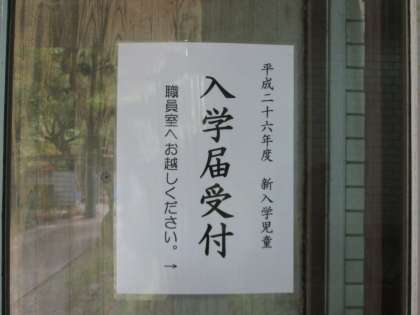 平成二十六年度 新入学児童
入学届受付
職員室へお越しください。→